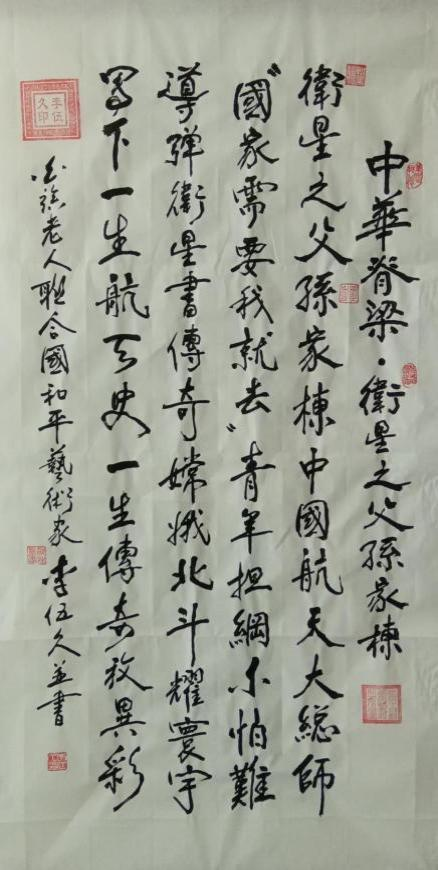 中華脊梁·衛星之父孫家棟
衛星之父孫家棟中國航天大總師
"國家需要我就去"青年担綱不怕難
導弹衛星書傳奇嫦娥北斗耀寰宇
写下一生航天史一生傳奇放異彩
白族老人聯合國和平藝術家李伍久並書
李伍久印